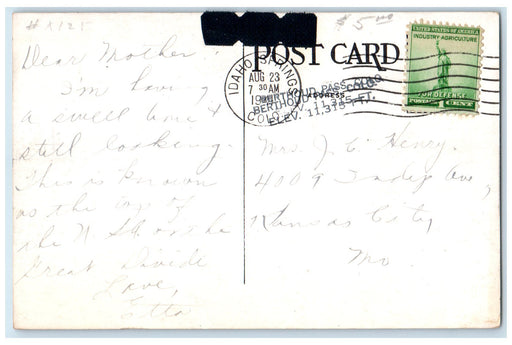 # R125
$ 5.00
POST CARD
IDAHO SPRINGS
AUG 23
7 30 AM
COLO.
BERTHOUD PASS, COLO.
ELEV. 11,315 FT.
ADDRESS
UNITED STATES OF AMERICA
INDUSTRY AGRICULTURE
FOR DEFENSE
POSTAGE 1 CENT
Dear Mother
I'm having
a swell time &
still looking.
This is known
as the top of
the
Great Divide
Love,
Etta
Mrs. J. C. Henry.
4009 Ave,
Kansas City,
Mo